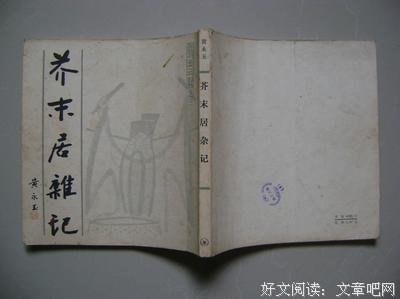 芥末居雜记
黄永玉
黄永玉
芥末居杂记
好文阅读：文章吧网